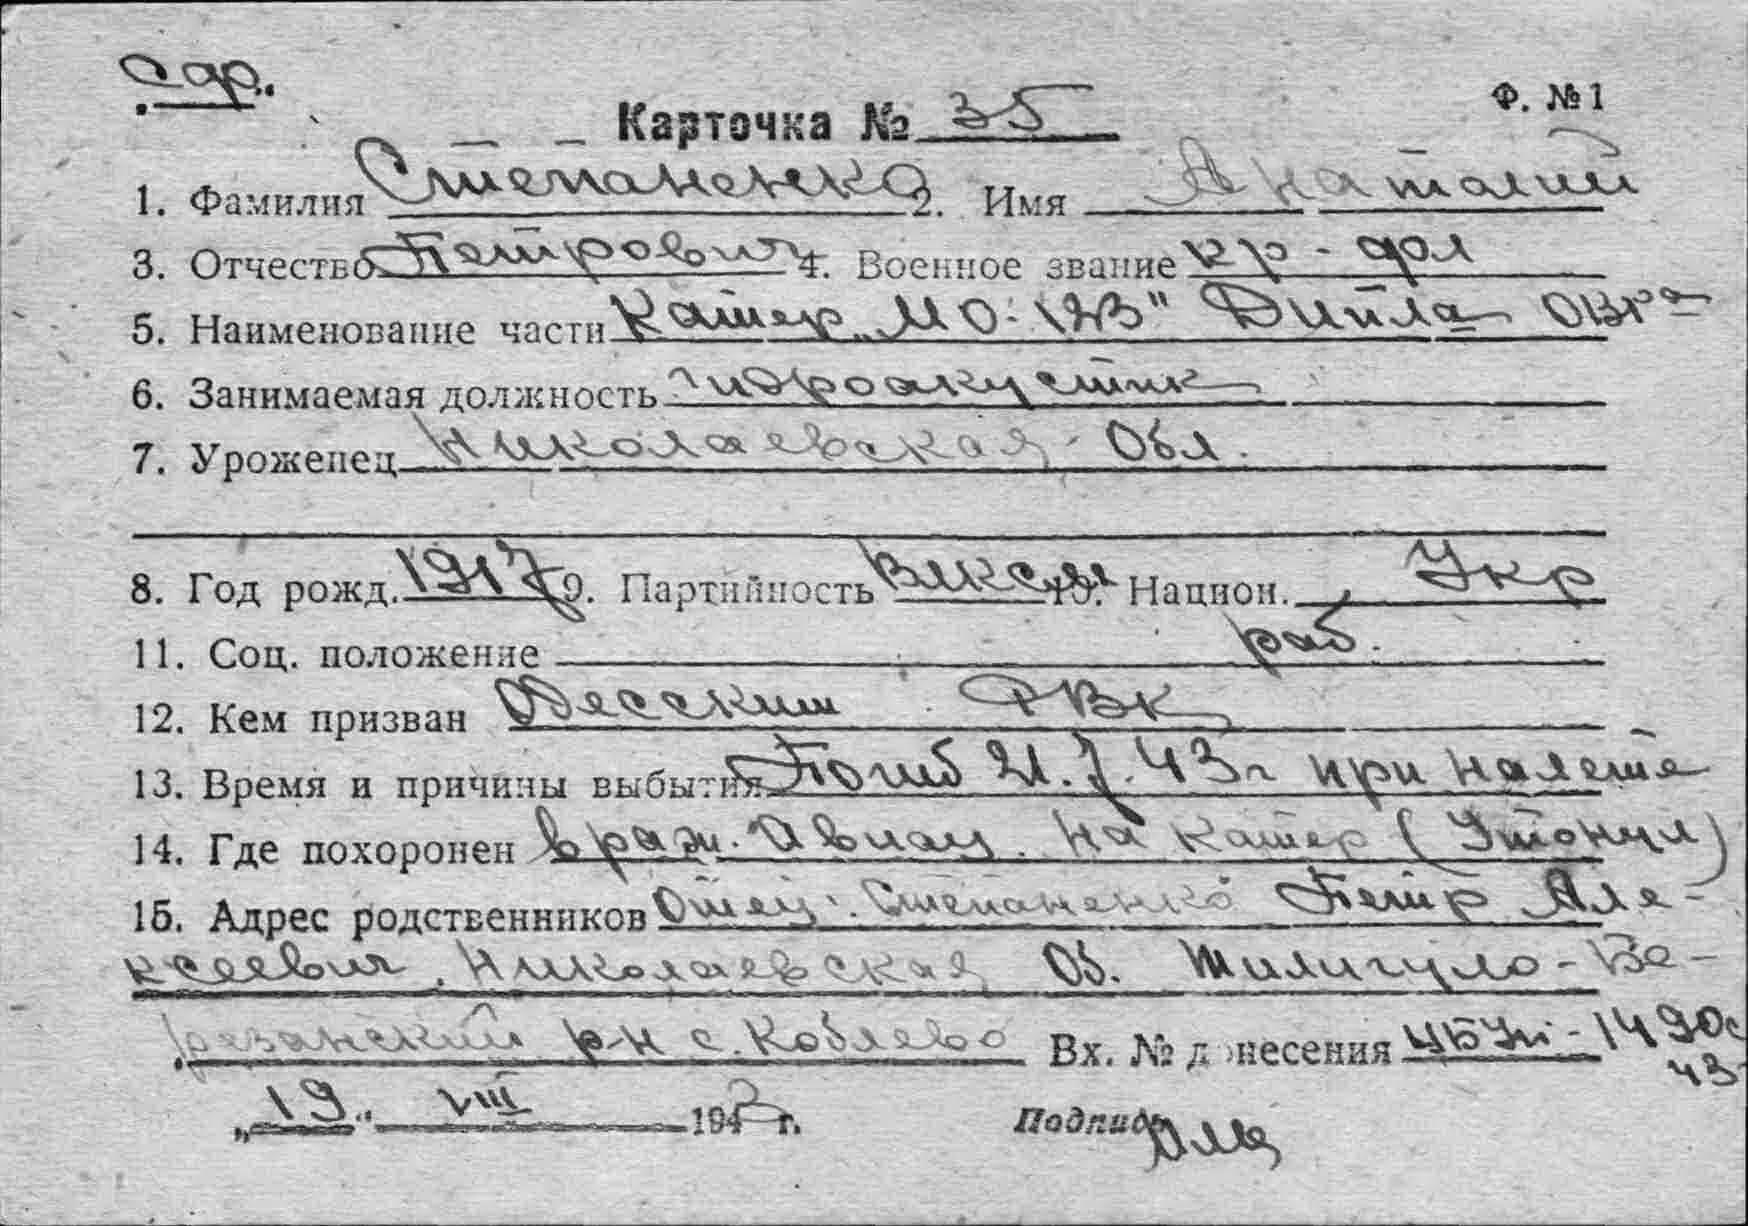 сдр.
Ф. №1
Карточка № 35
1. Фамилия Степаненко 2. Имя Анатолий
3. Отчество Петрович 4. Военное звание кр-фл
5. Наименование части Катер „МО-123" Дипла ОВРа
6. Занимаемая должность гидроакустик
7. Уроженец Николаевская Обл.
8. Год рожд. 1917 9. Партийность ВЛКСМ 10. Национ. Укр
11. Соц. положение раб.
12. Кем призван Одесским РВК
13. Время и причины выбытия Погиб 21.7.43г при налете
14. Где похоронен враж. Авиац. На Катер (Утонул)
15. Адрес родственников Отец: Степаненко Петр Але-
ксеевич, Николаевская Об. Тилигуло-Бе-
резанский р-н с. Коблево Вх. № донесения 1490с
43
„19" VIII 1943 г. Подпись